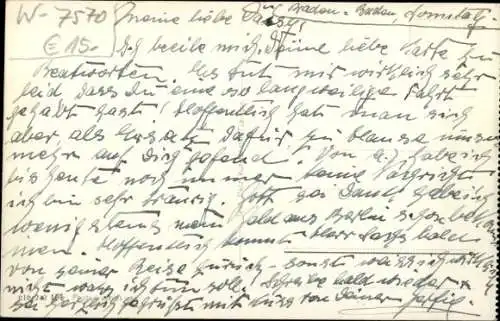 W-7570
€ 15.-
Baden-Baden, Sonntag.
meine liebe Daisy!
Ich beeile mich Deine liebe Karte zu
beantworten. Es tut mir wirklich sehr
leid dass Du eine so langweilige Fahrt
gehabt hast! Hoffentlich hat man sich
aber als Ersatz dafür zu Hause umso
mehr auf Dich gefreut! Von habe ich
bis heute noch immer keine Nachricht
ich bin sehr traurig. Gott sei Dank habe ich
wenigstens mein Geld aus Berlin schon bekom
men. Hoffentlich kommt Herr bald
von seiner Reise zurück - sonst weiss ich wirklich
nicht was ich tun soll. Schreibe bald wieder &
sei herzlich gegrüsst mit Kuss von Deiner